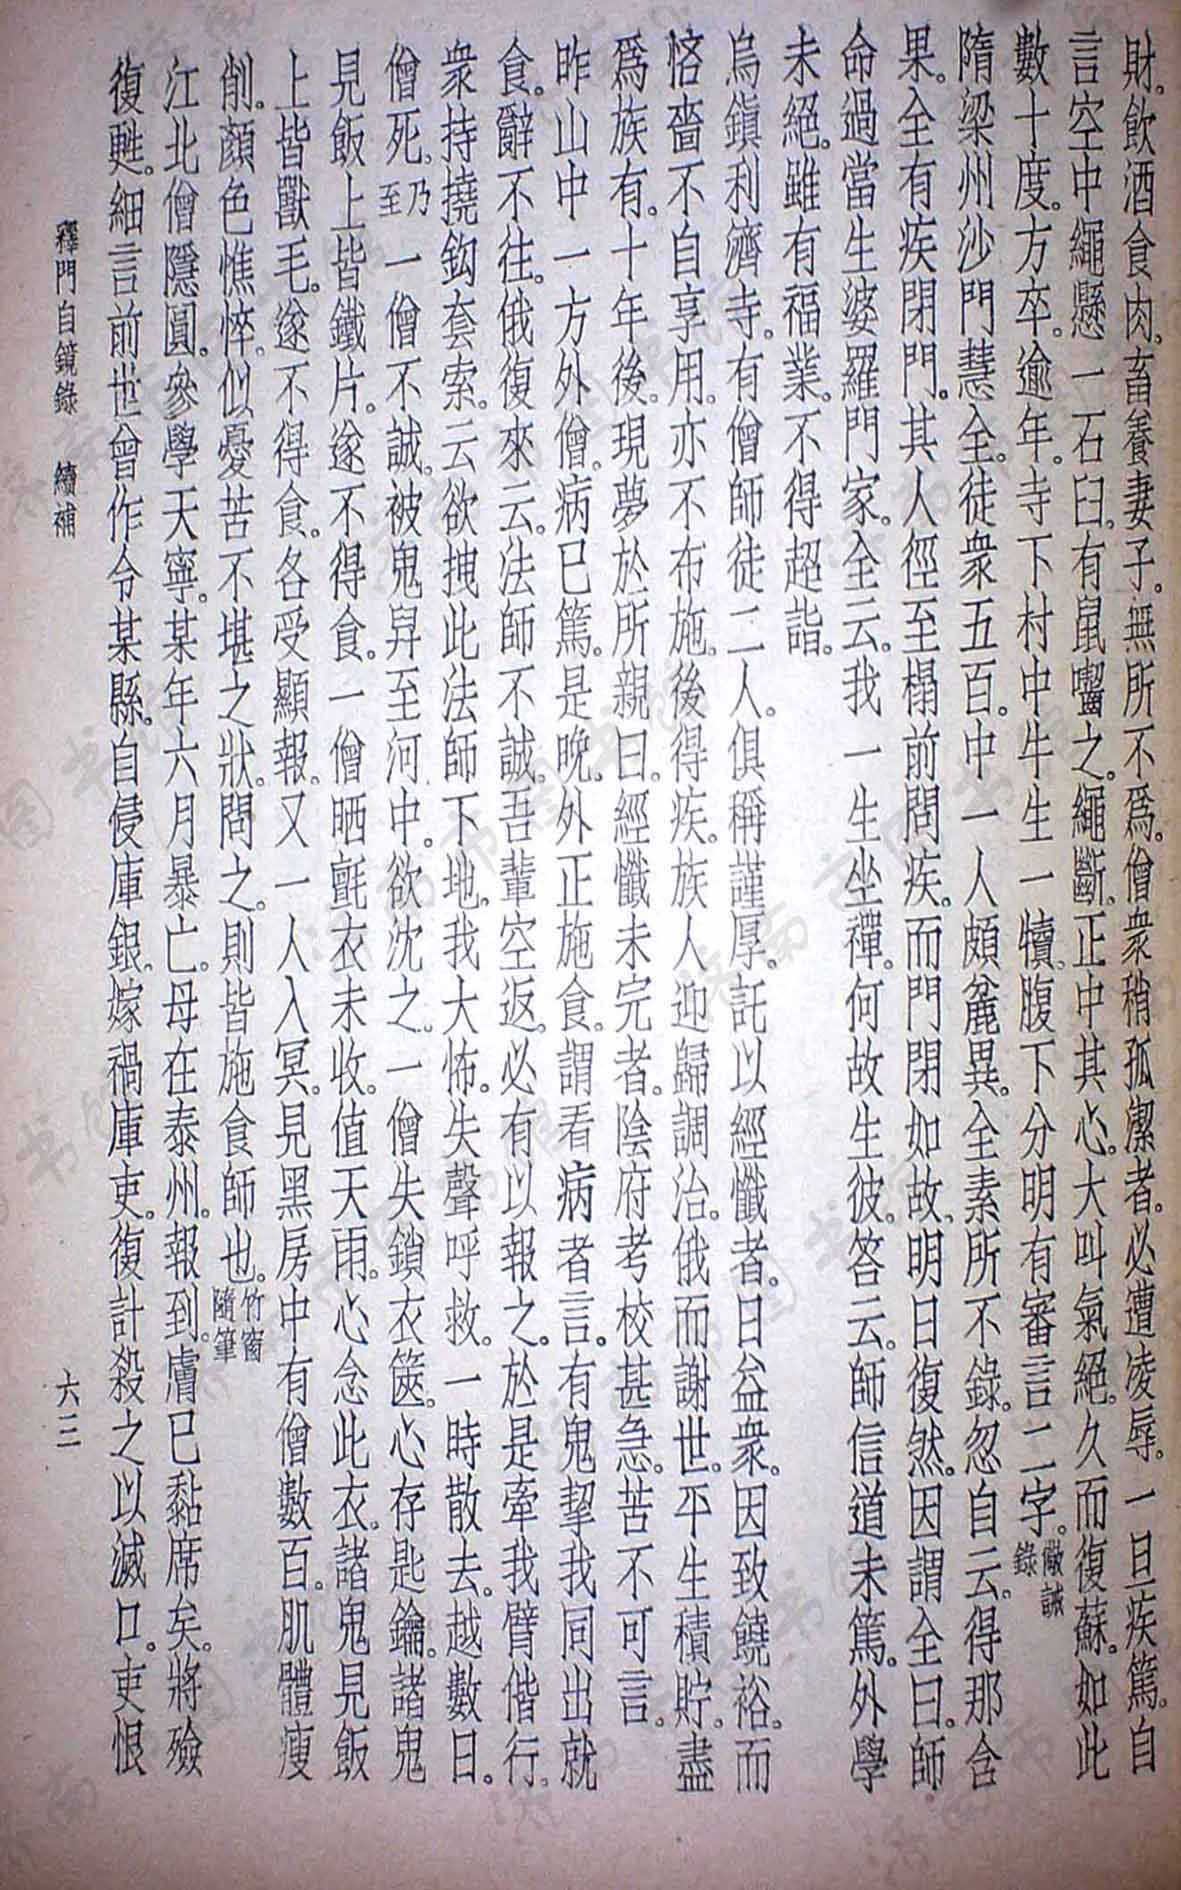 財。飲酒食肉。畜養妻子。無所不爲。僧衆稍孤潔者。必遭凌辱。一旦疾篤。自
言空中繩懸一石臼。有鼠嚙之。繩斷。正中其心。大叫氣絕。久而復蘇。如此
數十度。方卒。逾年。寺下村中牛生一犢。腹下分明有審言二字。儆誡錄
隋梁州沙門慧全。徒衆五百。中一人頗麁異。全素所不錄。忽自云。得那含
果。全有疾閉門。其人徑至榻前問疾。而門閉如故。明日復然。因謂全曰。師
命過當生婆羅門家。全云。我一生坐禪。何故生彼。答云。師信道未篤。外學
未絕。雖有福業。不得超詣。
烏鎭利濟寺。有僧師徒二人。俱稱謹厚。託以經懺者。日益衆。因致饒裕。而
悋嗇不自享用。亦不布施。後得疾。族人迎歸調治。俄而謝世。平生積貯。盡
爲族有。十年後。現夢於所親曰。經懺未完者。陰府考校甚急。苦不可言。
昨山中一方外僧。病已篤。是晚。外正施食。謂看病者言。有鬼挈我同出就
食。辭不往。俄復來云。法師不誠。吾輩空返。必有以報之。於是牽我臂偕行。
衆持撓鈎套索。云欲拽此法師下地。我大怖。失聲呼救。一時散去。越數日。
僧死。乃至一僧不誠。被鬼舁至河中。欲沈之。一僧失鎖衣篋。心存匙鑰。諸鬼
見飯上皆鐵片。遂不得食。一僧晒氈衣未收。值天雨。心念此衣。諸鬼見飯
上皆獸毛。遂不得食。各受顯報。又一人入冥。見黑房中有僧數百。肌體瘦
削。顏色憔悴。似憂苦不堪之狀。問之。則皆施食師也。竹窗隨筆
江北僧隱圓。參學天寧。某年六月暴亡。母在泰州。報到。膚已黏席矣。將殮
復甦。細言前世曾作令某縣。自侵庫銀。嫁禍庫吏。復計殺之以滅口。吏恨
釋門自鏡錄　續補
六三